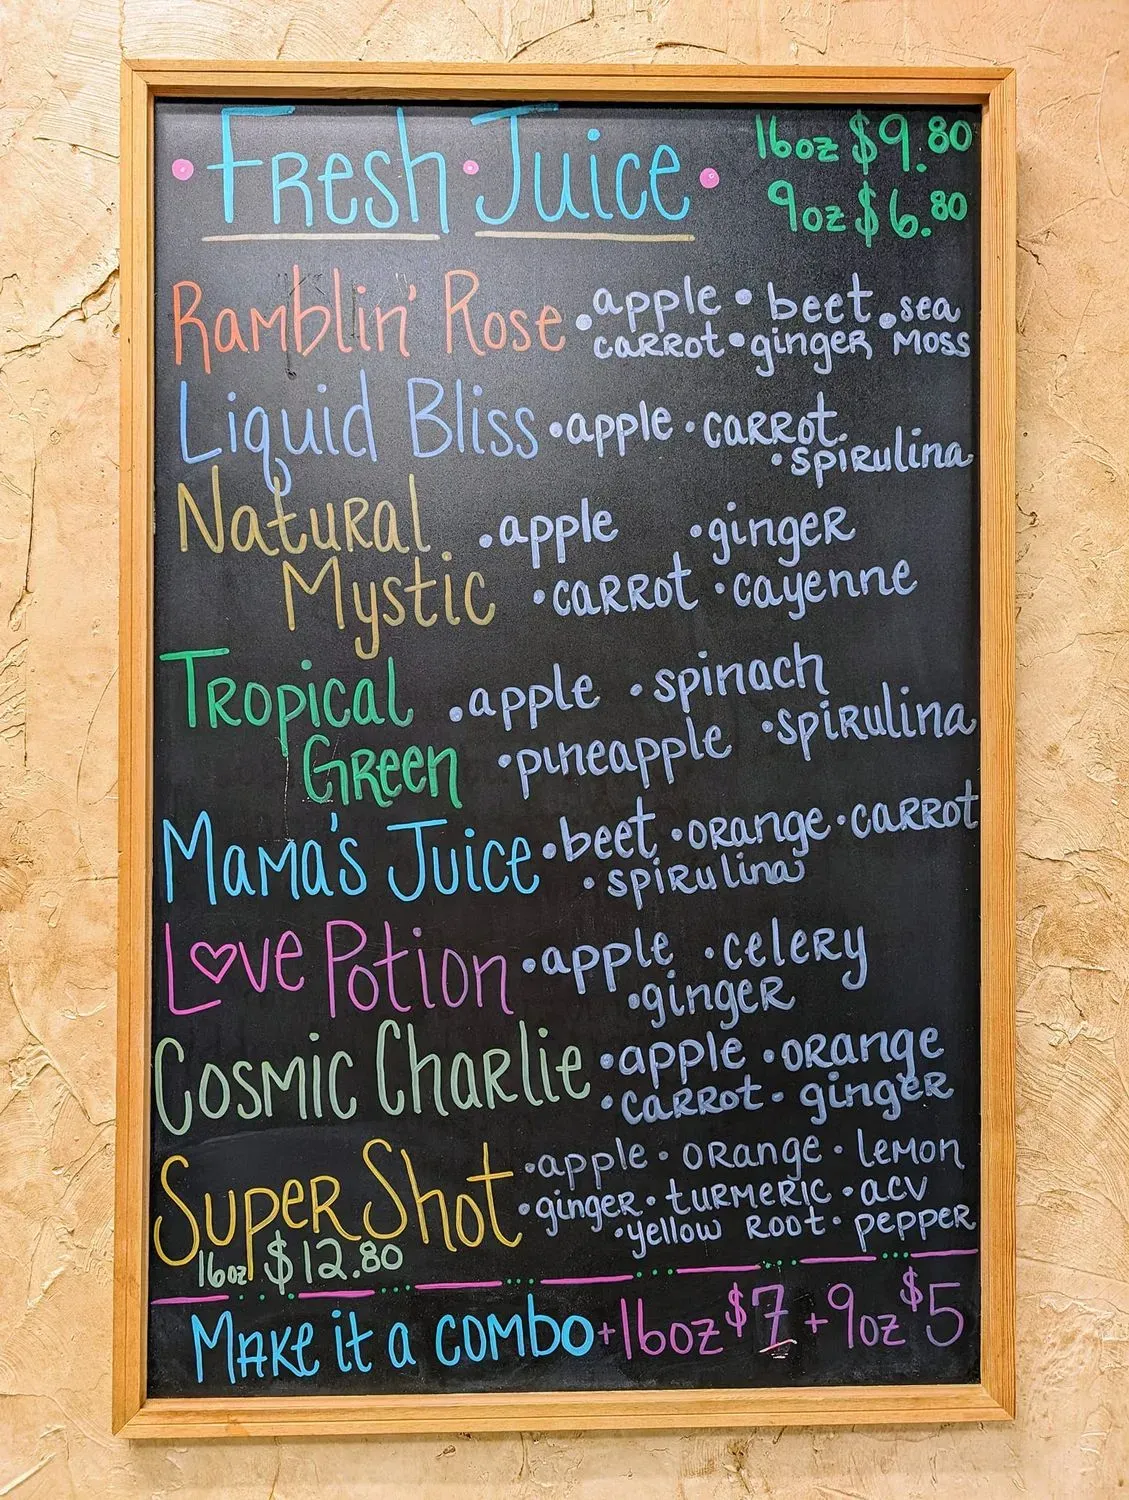 Fresh Juice
16oz $9.80
9oz $6.80
Ramblin' Rose • apple • beet • sea
carrot • ginger moss
Liquid Bliss • apple • carrot
• spirulina
Natural • apple • ginger
Mystic • carrot • cayenne
Tropical • apple • spinach
Green • pineapple • spirulina
Mama's Juice • beet • orange • carrot
• spirulina
L♡ve Potion • apple • celery
• ginger
Cosmic Charlie • apple • orange
• carrot • ginger
Super Shot • apple • orange • lemon
• ginger • turmeric • acv
• yellow root • pepper
16oz $12.80
Make it a combo +16oz $7 +9oz $5